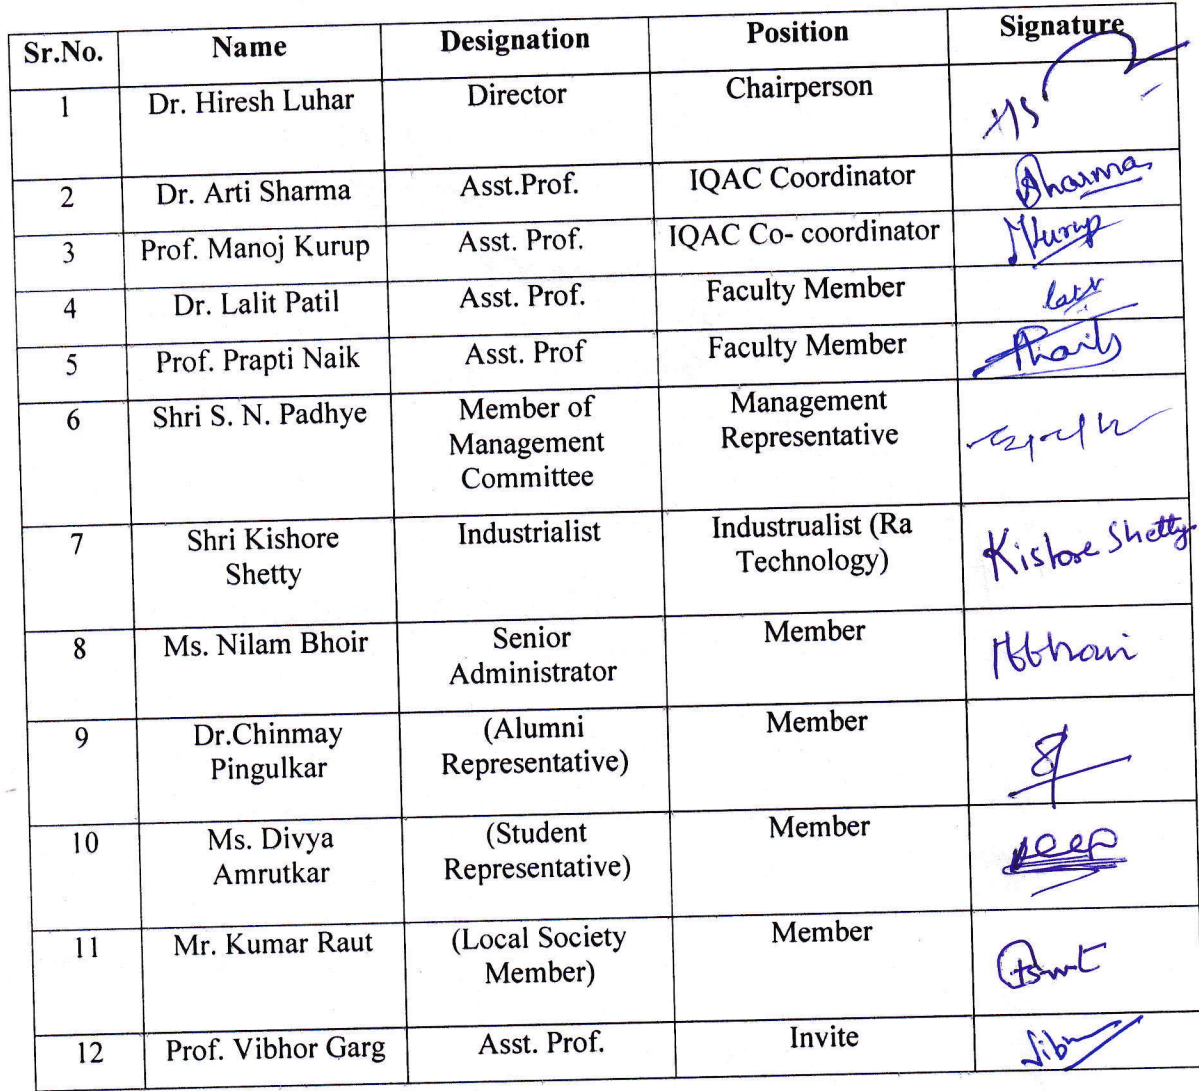 Sr.No. Name Designation Position Signature
1 Dr. Hiresh Luhar Director Chairperson
2 Dr. Arti Sharma Asst.Prof. IQAC Coordinator Sharma
3 Prof. Manoj Kurup Asst. Prof. IQAC Co- coordinator MKurup
4 Dr. Lalit Patil Asst. Prof. Faculty Member
5 Prof. Prapti Naik Asst. Prof Faculty Member
6 Shri S. N. Padhye Member of Management
Management Representative
Committee
7 Shri Kishore Industrialist Industrualist (Ra Kishore Shetty
Shetty Technology)
8 Ms. Nilam Bhoir Senior Member
Administrator
9 Dr.Chinmay (Alumni Member
Pingulkar Representative)
10 Ms. Divya (Student Member
Amrutkar Representative)
11 Mr. Kumar Raut (Local Society Member
Member)
12 Prof. Vibhor Garg Asst. Prof. Invite